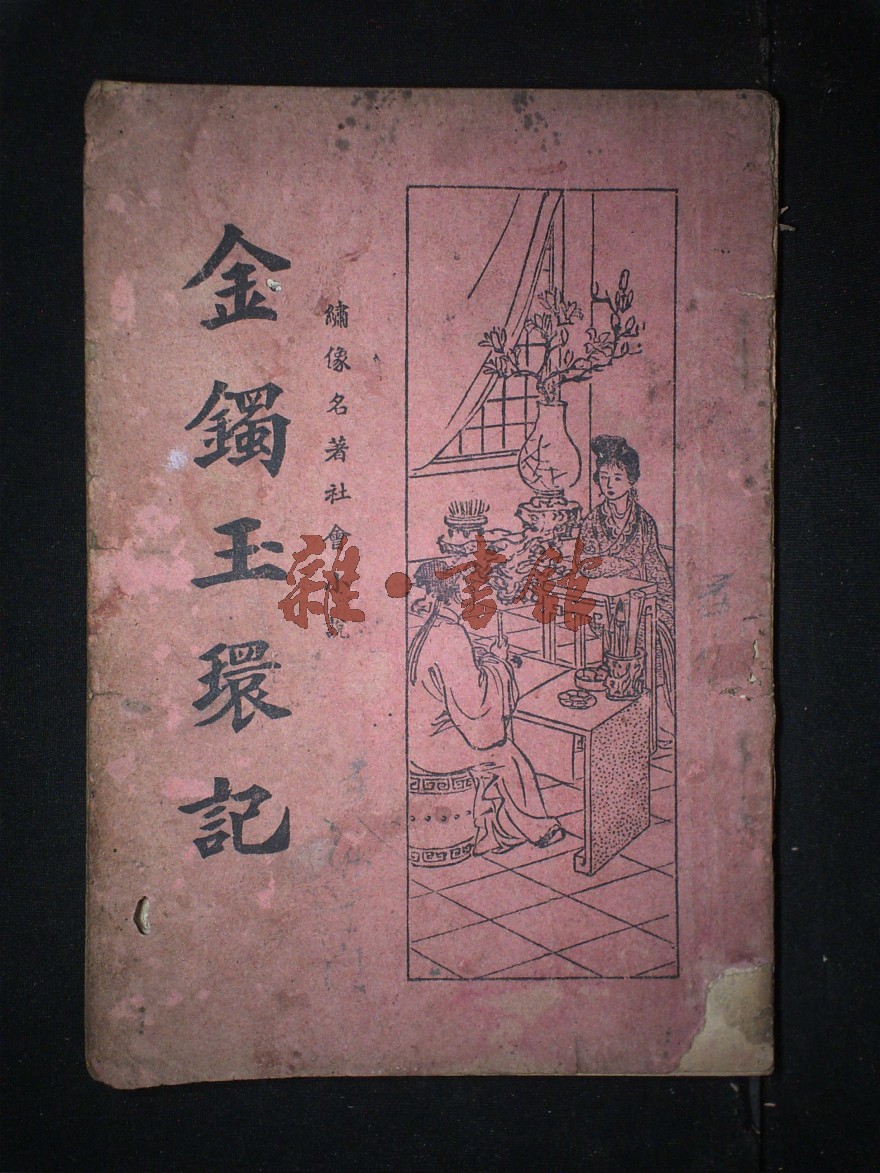 繡像名著社會小說
金鐲玉環記
雜·書館